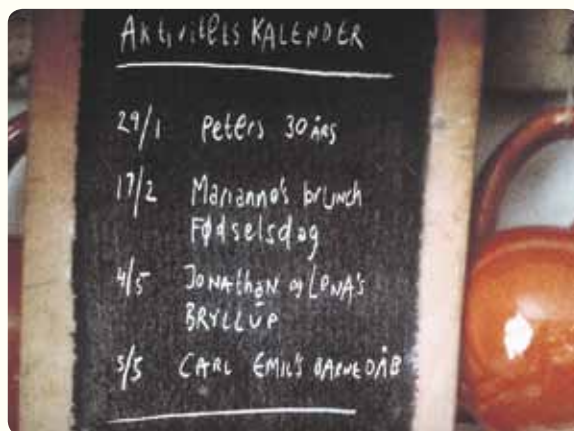 Aktivitets KALENDER
29/1 Peters 30 ÅRS
17/2 Marianne's brunch
Fødselsdag
4/5 JONAthAN og LENA's
BRYLLUP
5/5 CARL EMIL'S BARNEDÅB